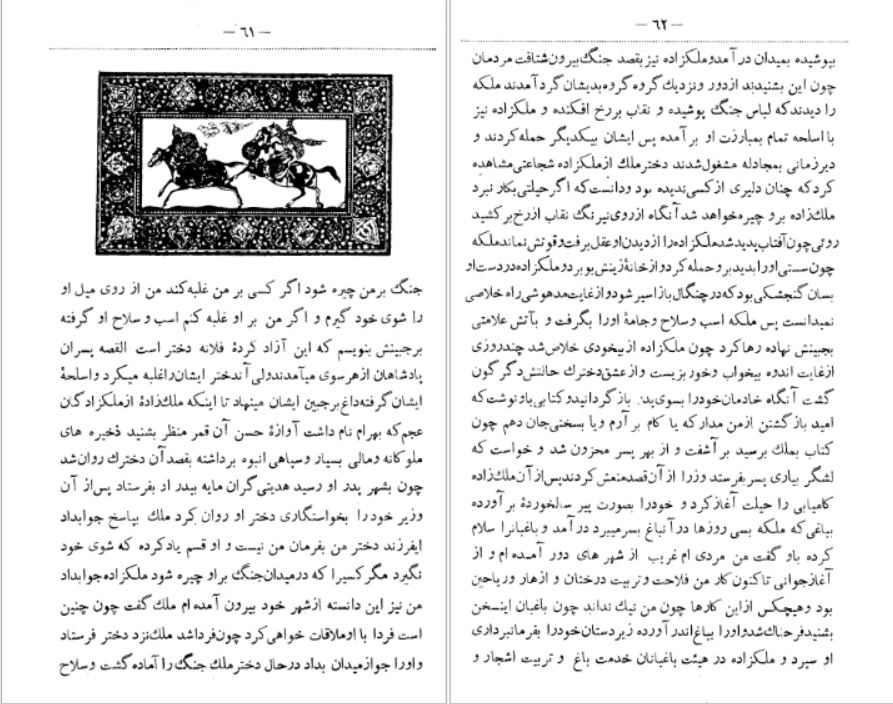 — ٦١ —
جنگ برمن چیره شود اگر کسی بر من غلبه کند من از روی میل او
را شوی خود گیرم و اگر من بر او غلبه کنم اسب و سلاح او گرفته
برجبینش بنویسم که این آزاد کردهٔ فلانه دختر است القصه پسران
پادشاهان ازهرسوی میآمدندولی آندختر ایشان راغلبه میکرد واسلحهٔ
ایشان گرفته‌داغ برجبین ایشان مینهاد تا اینکه ملك‌زادهٔ ازملکزادگان
عجم‌که بهرام نام داشت آوازهٔ حسن آن قمر منظر بشنید ذخیره های
ملوکانه ومالی بسیار وسپاهی انبوه برداشته بقصدآن دخترك روان‌شد
چون بشهر پدر او رسید هدیتی‌گران مایه بپدر او بفرستاد پس‌از آن
وزیر خود را بخواستگاری دختر او روان کرد ملك بپاسخ جوابداد
ایفرزند دختر من بفرمان من نیست و او قسم یادکرده که شوی خود
نگیرد مگرکسیرا که درمیدان‌جنگ براو چیره شود ملکزاده‌جوابداد
من نیز این دانسته ازشهر خود بیرون آمده ام ملك گفت چون چنین
است فردا با اوملاقات خواهی‌کرد چون‌فرداشد ملك‌نزد دختر فرستاد
واورا جوازمیدان بداد درحال دخترملك جنگ را آماده گشت وسلاح
— ٦٢ —
بپوشیده بمیدان درآمدوملکزاده نیز بقصد جنگ بیرون‌شتافت مردمان
چون این بشنیدند ازدور ونزدیك گروه گروه‌بدیشان گردآمدند ملکه
را دیدندکه لباس جنگ پوشیده و نقاب بررخ افکنده و ملکزاده نیز
با اسلحه تمام بمبارزت او برآمده پس ایشان بیکدیگر حمله‌کردند و
دیرزمانی بمجادله مشغول‌شدند دختر ملك ازملکزاده شجاعتی مشاهده
کردکه چنان دلیری ازکسی‌ندیده بود ودانست‌که اگرحیلتی بکار نبرد
ملك‌زاده برو چیره‌خواهد شدآنگاه ازروی‌نیرنگ نقاب ازرخ برکشید
روئی‌چون‌آفتاب‌پدیدشدملکزاده‌را ازدیدن اوعقل برفت‌وقوتش نماندملکه
چون‌سستی اورابدیدبروحمله کردوازخانهٔ‌زینش بوبردوملکزاده‌دردست‌او
بسان گنجشکی‌بودکه‌درچنگال‌بازاسیر شودوازغایت‌مدهوشی راه خلاصی
نمیدانست پس ملکه اسب وسلاح وجامهٔ اورا بگرفت و بآتش علامتی
بجبینش نهاده رهاکرد چون ملکزاده ازبیخودی خلاص‌شد چندروزی
ازغایت اندوه بیخواب وخور بزیست وازعشق‌دخترك حالتش‌دگرگون
گشت آنگاه خادمان‌خودرا بسوی‌پدر بازگردانیدوکتابی‌باونوشت‌که
امید بازگشتن ازمن مدارکه یا کام برآرم ویا بسختی‌جان دهم چون
کتاب بملك برسید برآشفت و از بهر پسر محزون شد و خواست که
لشگر بیاری پسربفرستد وزرا ازآن‌قصدمنعش‌کردندپس‌ازآن‌ملك‌زاده
کامیابی را حیلت آغازکرد و خودرا بصورت پیر سالخوردهٔ برآورده
بباغی‌که ملکه بسی روزها درآنباغ بسرمیبرد درآمد و باغبانرا سلام
کرده باو گفت من مردی ام غریب از شهر های دور آمده ام و از
آغازجوانی تاکنون‌کار من فلاحت وتربیت درختان و ازهار وریاحین
بود وهیچکس ازاین کارها چون من نیك نداند چون باغبان اینسخن
بشنیدفرحناك‌شدواورا بباغ‌اندر آورده زیردستان‌خودرا بفرمانبرداری
او سپرد و ملکزاده در هیئت باغبانان خدمت باغ و تربیت اشجار و